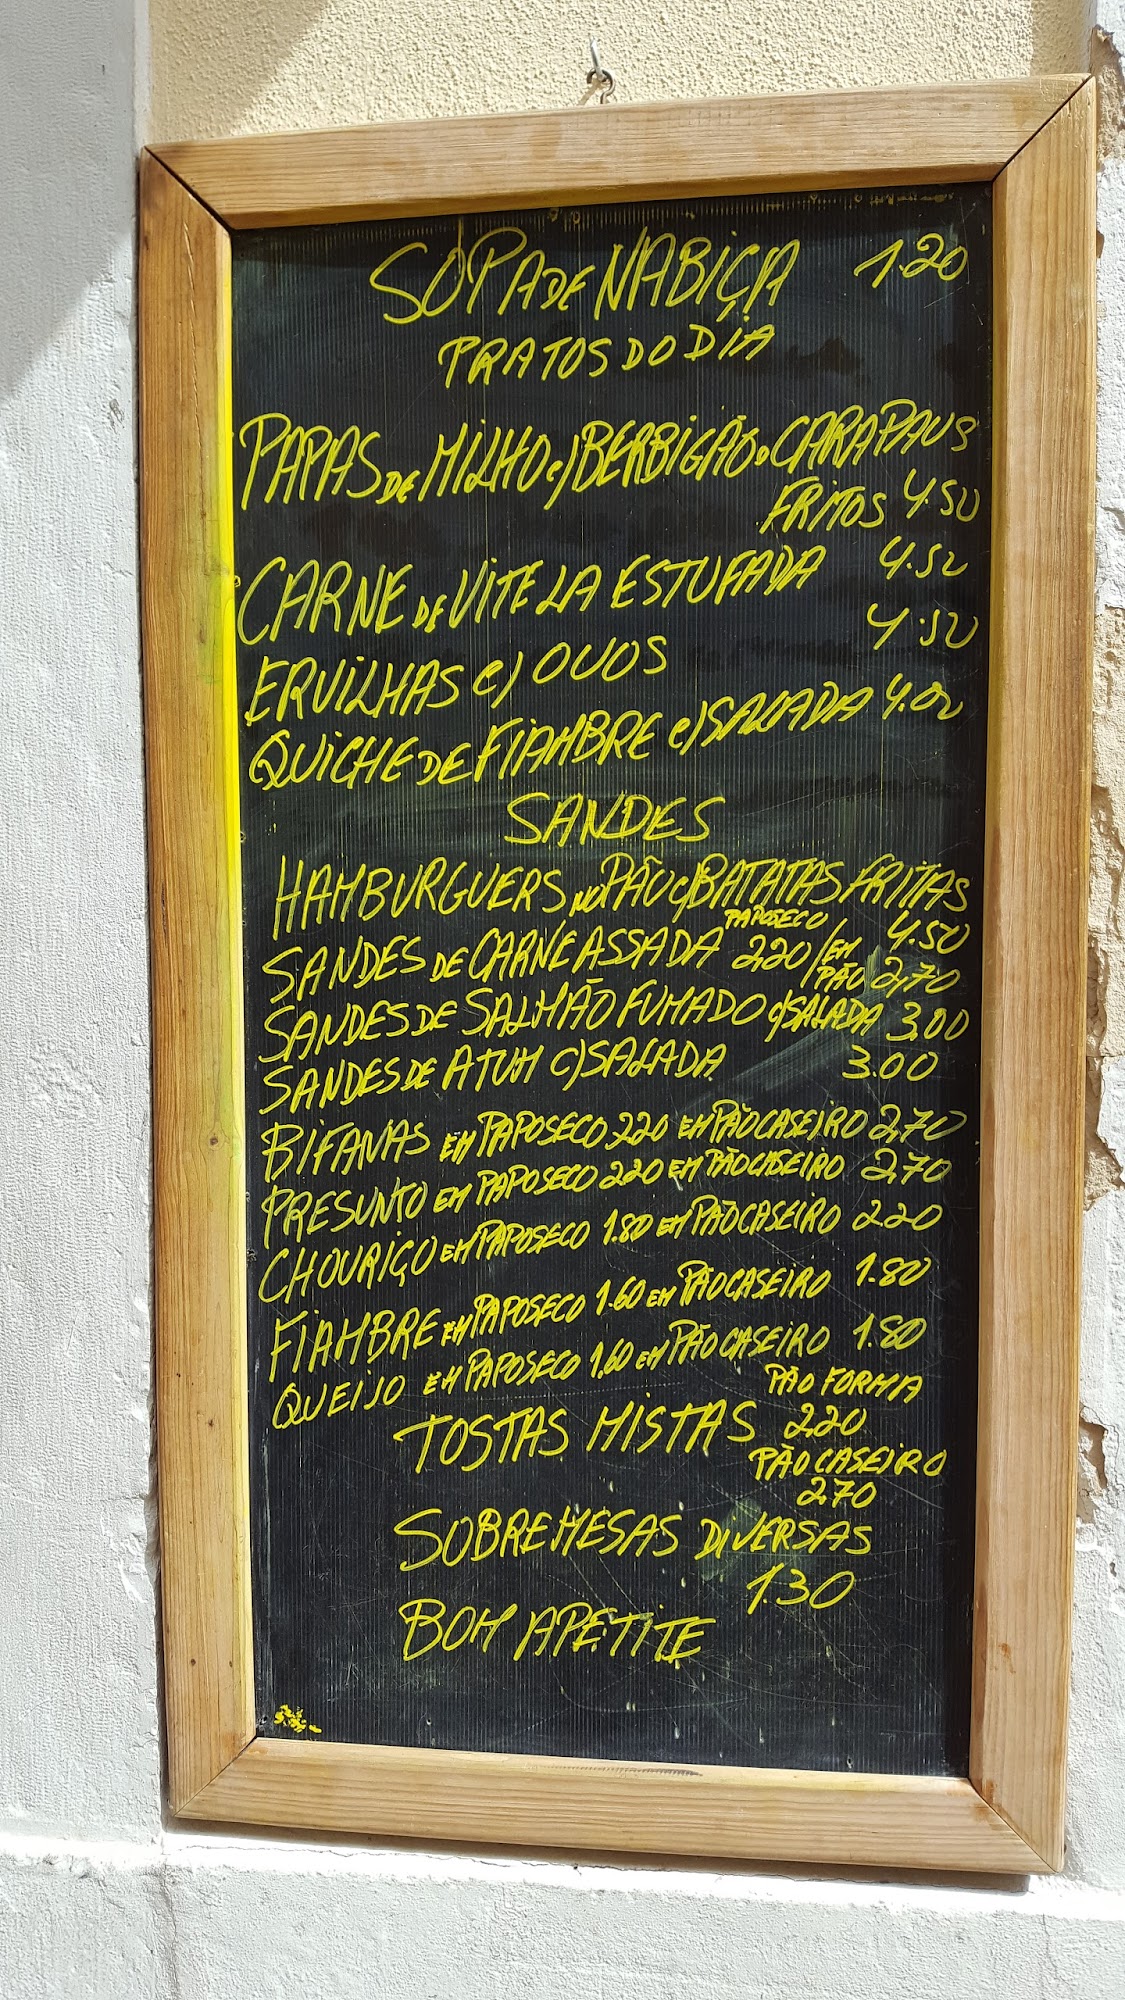 SOPA DE NABIÇA 1.20
PRATOS DO DIA
PAPAS DE MILHO C/BERBIGÃO O CARAPAUS
FRITOS 4.50
CARNE DE VITELA ESTUFADA 4.50
ERVILHAS C/ OVOS 4.50
QUICHE DE FIAMBRE C/SALADA 4.00
SANDES
HAMBURGUERS NO PÃO C/BATATAS FRITAS
4.50
SANDES DE CARNE ASSADA PAPOSECO 2,20/EM PÃO 2,70
SANDES DE SALMÃO FUMADO C/SALADA 3.00
SANDES DE ATUM C/SALADA 3.00
BIFANAS EM PAPOSECO 2.20 EM PÃO CASEIRO 2,70
PRESUNTO EM PAPOSECO 2.20 EM PÃO CASEIRO 2,70
CHOURIÇO EM PAPOSECO 1.80 EM PÃO CASEIRO 2.20
FIAMBRE EM PAPOSECO 1.60 EM PÃO CASEIRO 1.80
QUEIJO EM PAPOSECO 1,60 EM PÃO CASEIRO 1.80
PÃO FORMA
TOSTAS MISTAS 2,20
PÃO CASEIRO
2,70
SOBREMESAS DIVERSAS
1.30
BOM APETITE